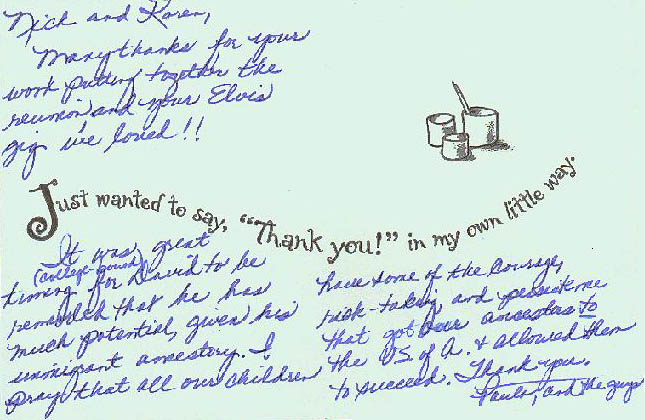 Nick and Karen,
Many thanks for your
work putting together the
reunion and your Elvis
gig we loved!!
Just wanted to say, "Thank you!" in my own little way.
It was great
(college-bound)
timing for David to be
reminded that he has
much potential, given his
immigrant ancestory. I
pray that all our children
have some of the courage,
risk-taking and
that got our ancestors to
the US of A. & allowed them
to succeed. Thank you.
Paula, and the guys